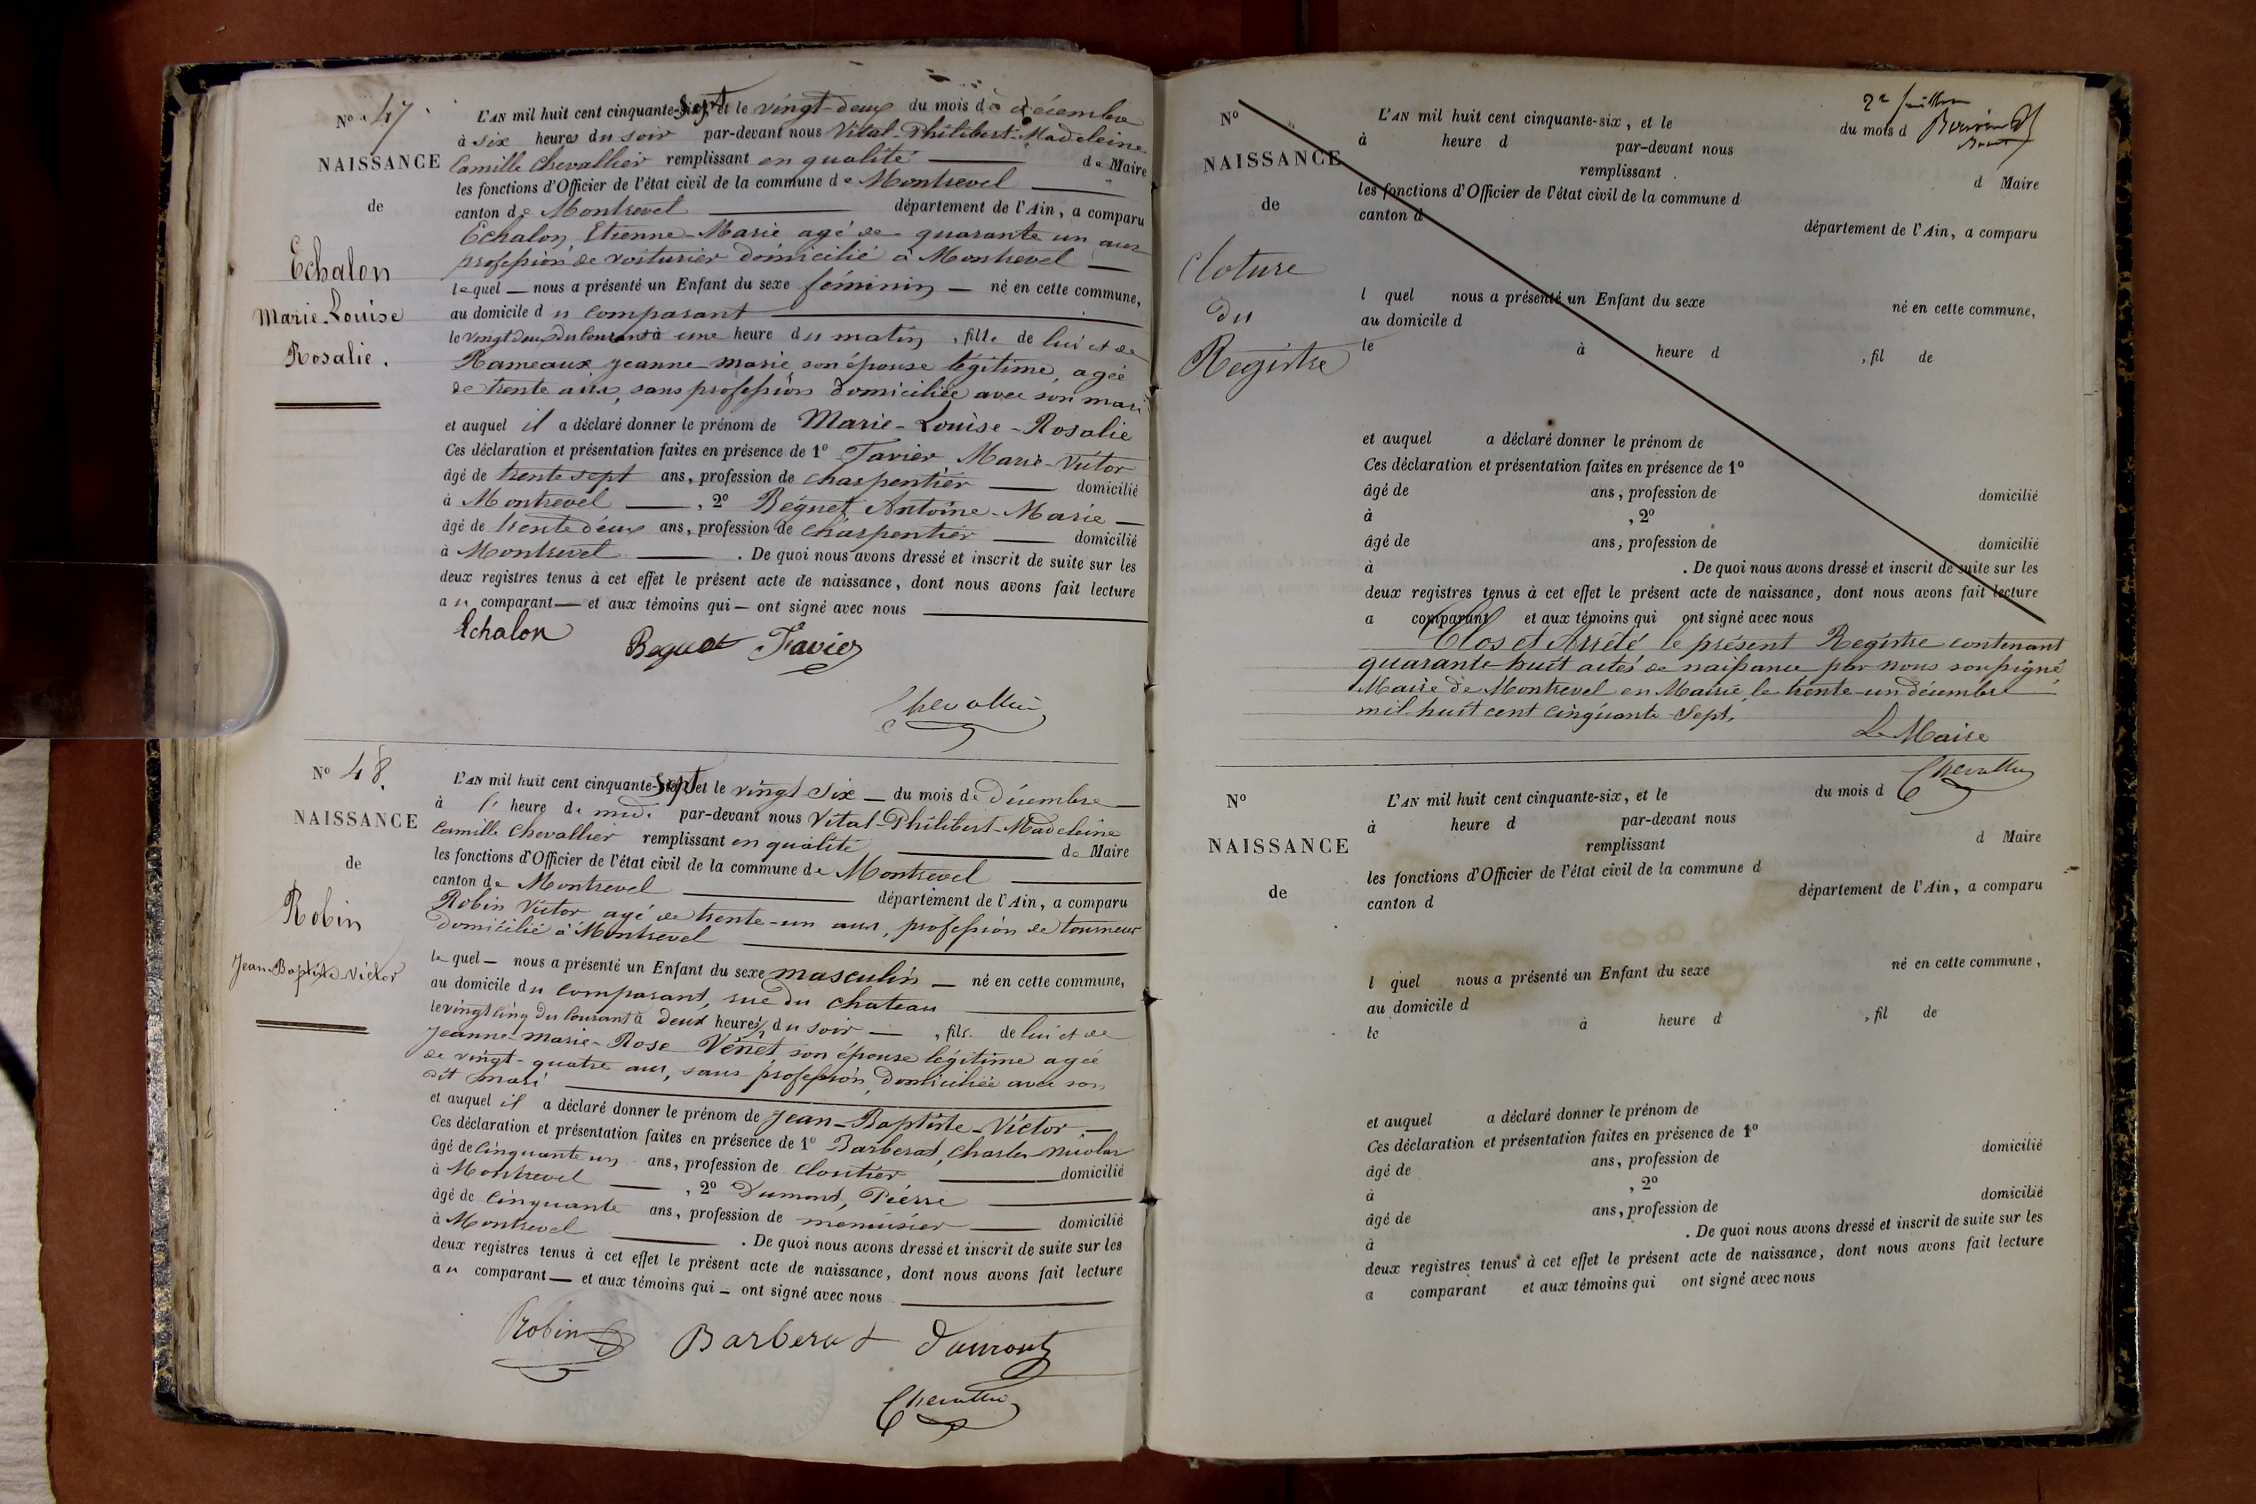 N° 47.
NAISSANCE
de
Echalon
Marie-Louise
Rosalie.
L'AN mil huit cent cinquante-Sept et le vingt-deux du mois de décembre
à six heures du soir par-devant nous Vital-Philibert-Madeleine
Camille Chevallier remplissant en qualité de Maire
les fonctions d'Officier de l'état civil de la commune de Montrevel
canton de Montrevel département de l'Ain, a comparu
Echalon, Etienne-Marie agé de quarante un ans
profession de voiturier domicilié à Montrevel
lequel nous a présenté un Enfant du sexe féminin né en cette commune,
au domicile du comparant
le vingt deux du courant à une heure du matin, fille de lui et de
Rameaux Jeanne marie son épouse légitime, agée
de trente ans, sans profession domiciliée avec son mari
et auquel il a déclaré donner le prénom de Marie-Louise-Rosalie
Ces déclaration et présentation faites en présence de 1° Favier Marie-Victor
âgé de trente sept ans, profession de charpentier domicilié
à Montrevel , 2° Béguet Antoine-Marie
âgé de trente deux ans, profession de charpentier domicilié
à Montrevel . De quoi nous avons dressé et inscrit de suite sur les
deux registres tenus à cet effet le présent acte de naissance, dont nous avons fait lecture
au comparant et aux témoins qui ont signé avec nous
Echalon Beguet Favier
Chevallier
N° 48.
NAISSANCE
de
Robin
Jean-Baptiste-Victor
L'AN mil huit cent cinquante-Sept et le vingt Six du mois de Décembre
à l' heure de midi par-devant nous Vital-Philibert-Madeleine
Camille Chevallier remplissant en qualité de Maire
les fonctions d'Officier de l'état civil de la commune de Montrevel
canton de Montrevel département de l'Ain, a comparu
Robin Victor agé de trente-un ans, profession de tourneur
domicilié à Montrevel
lequel nous a présenté un Enfant du sexe masculin né en cette commune,
au domicile du comparant, rue du chateau
le vingt cinq du courant à deux heures ½ du soir , fils de lui et de
Jeanne-Marie-Rose Vénet son épouse légitime agée
de vingt-quatre ans, sans profession, domiciliée avec son
dit mari
et auquel il a déclaré donner le prénom de Jean-Baptiste-Victor
Ces déclaration et présentation faites en présence de 1° Barberat, Charles Nicolas
âgé de cinquante un ans, profession de cloutier domicilié
à Montrevel , 2° Dumont, Pierre
âgé de cinquante ans, profession de menuisier domicilié
à Montrevel . De quoi nous avons dressé et inscrit de suite sur les
deux registres tenus à cet effet le présent acte de naissance, dont nous avons fait lecture
au comparant et aux témoins qui ont signé avec nous
Robin Barberat Dumont
Chevallier
N°
NAISSANCE
de
Cloture
du
Registre
L'AN mil huit cent cinquante-six, et le du mois d
à heure d par-devant nous
remplissant d Maire
les fonctions d'Officier de l'état civil de la commune d
canton d département de l'Ain, a comparu
l quel nous a présenté un Enfant du sexe né en cette commune,
au domicile d
le à heure d , fil de
et auquel a déclaré donner le prénom de
Ces déclaration et présentation faites en présence de 1°
âgé de ans, profession de domicilié
à , 2°
âgé de ans, profession de domicilié
à . De quoi nous avons dressé et inscrit de suite sur les
deux registres tenus à cet effet le présent acte de naissance, dont nous avons fait lecture
a comparant et aux témoins qui ont signé avec nous
Clos et Arrêté le présent Registre contenant
quarante-huit actes de naissance par nous soussigné
Maire de Montrevel en Mairie, le trente-un décembre
mil huit cent cinquante-Sept.
Le Maire
Chevallier
N°
NAISSANCE
de
L'AN mil huit cent cinquante-six, et le du mois d
à heure d par-devant nous
remplissant d Maire
les fonctions d'Officier de l'état civil de la commune d
canton d département de l'Ain, a comparu
l quel nous a présenté un Enfant du sexe né en cette commune,
au domicile d
le à heure d , fil de
et auquel a déclaré donner le prénom de
Ces déclaration et présentation faites en présence de 1°
âgé de ans, profession de domicilié
à , 2°
âgé de ans, profession de domicilié
à . De quoi nous avons dressé et inscrit de suite sur les
deux registres tenus à cet effet le présent acte de naissance, dont nous avons fait lecture
a comparant et aux témoins qui ont signé avec nous